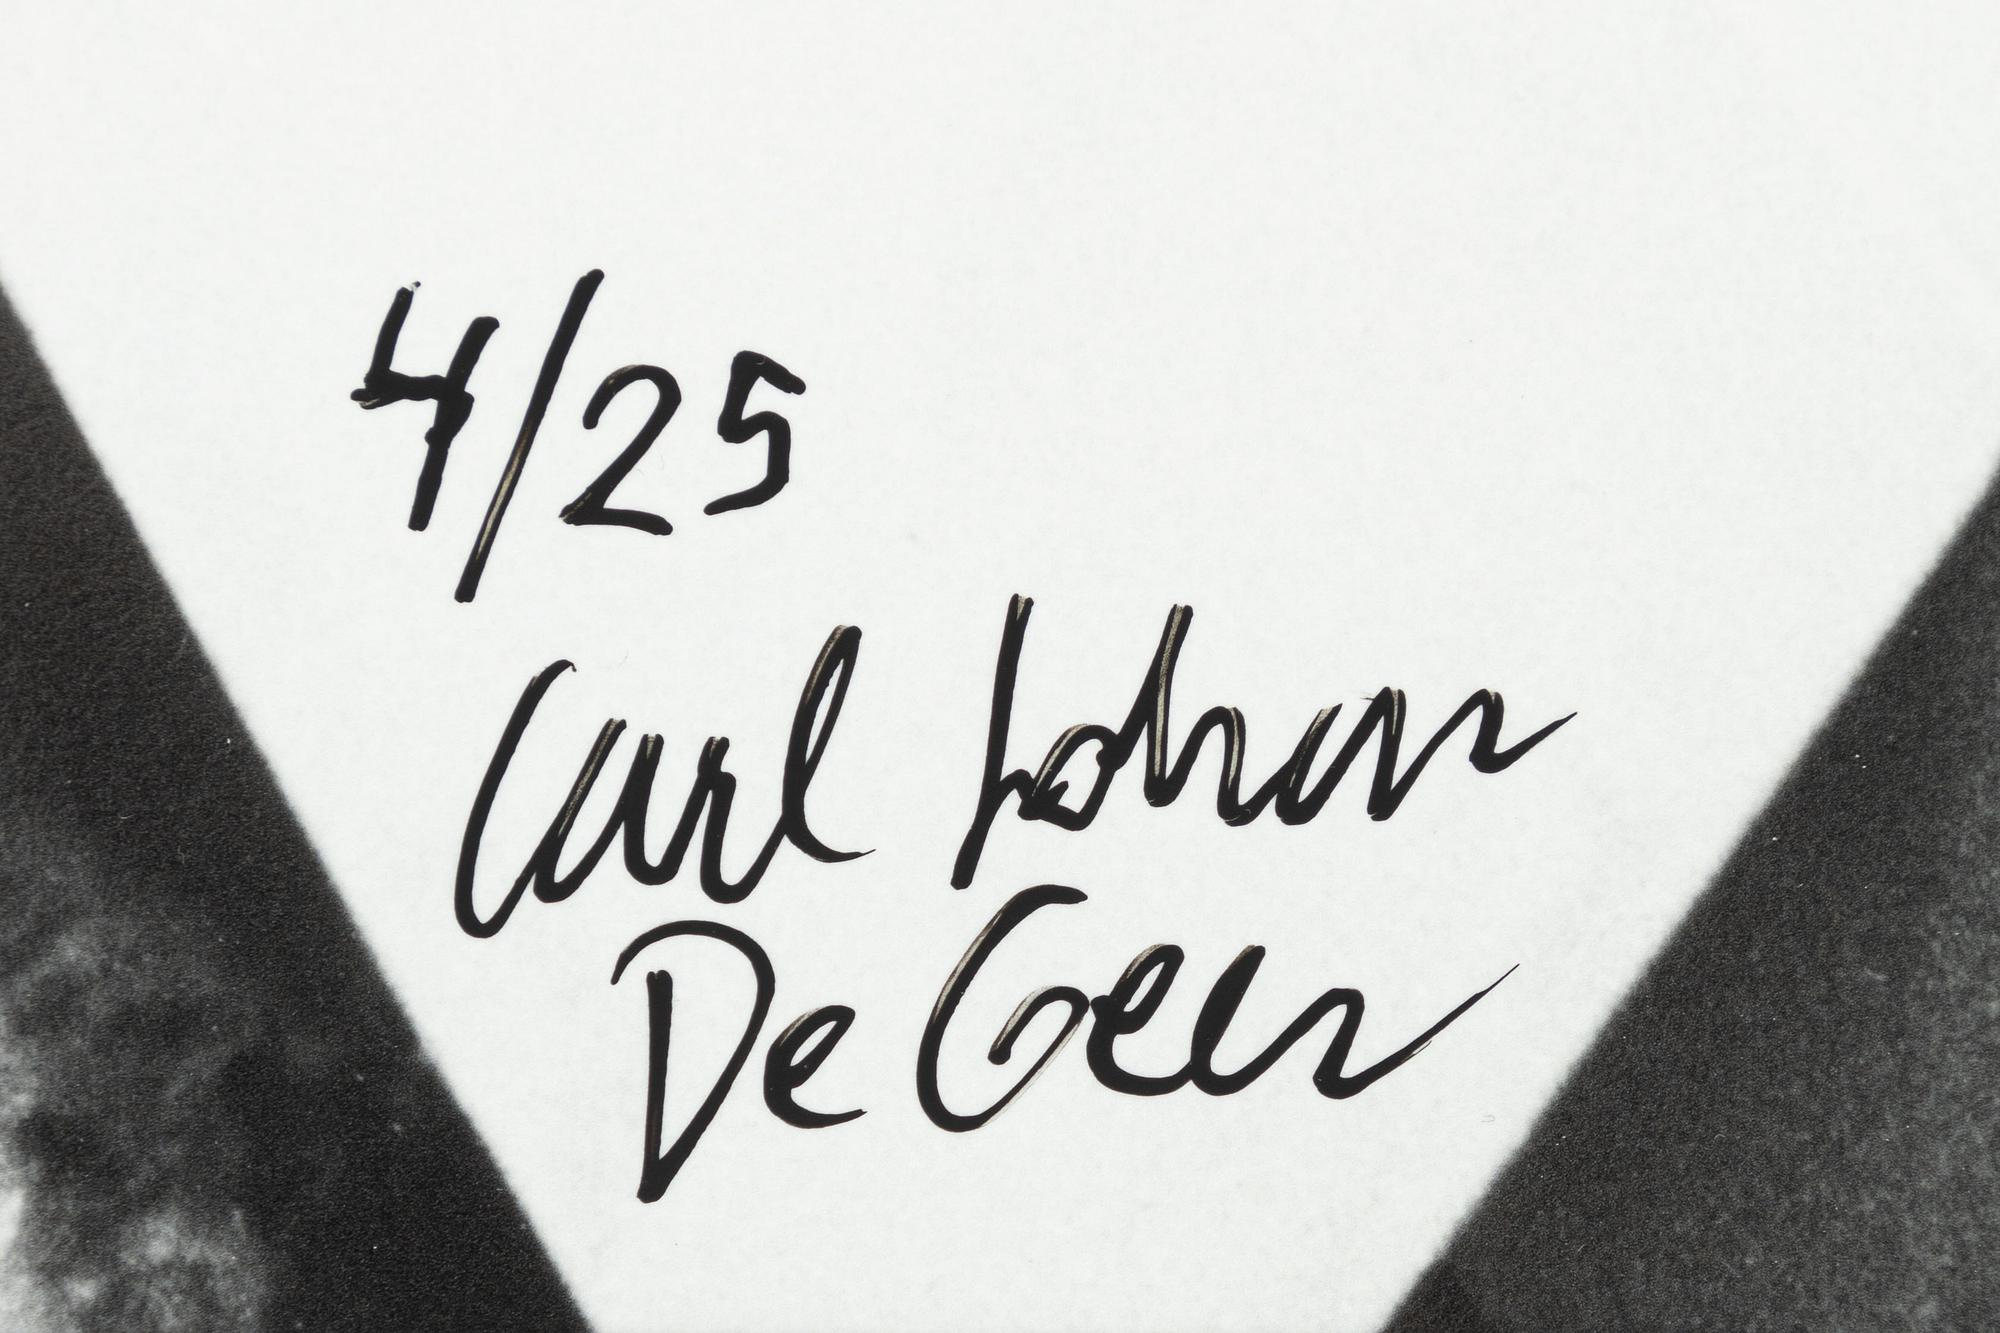 4/25
Carl Johan
De Geer